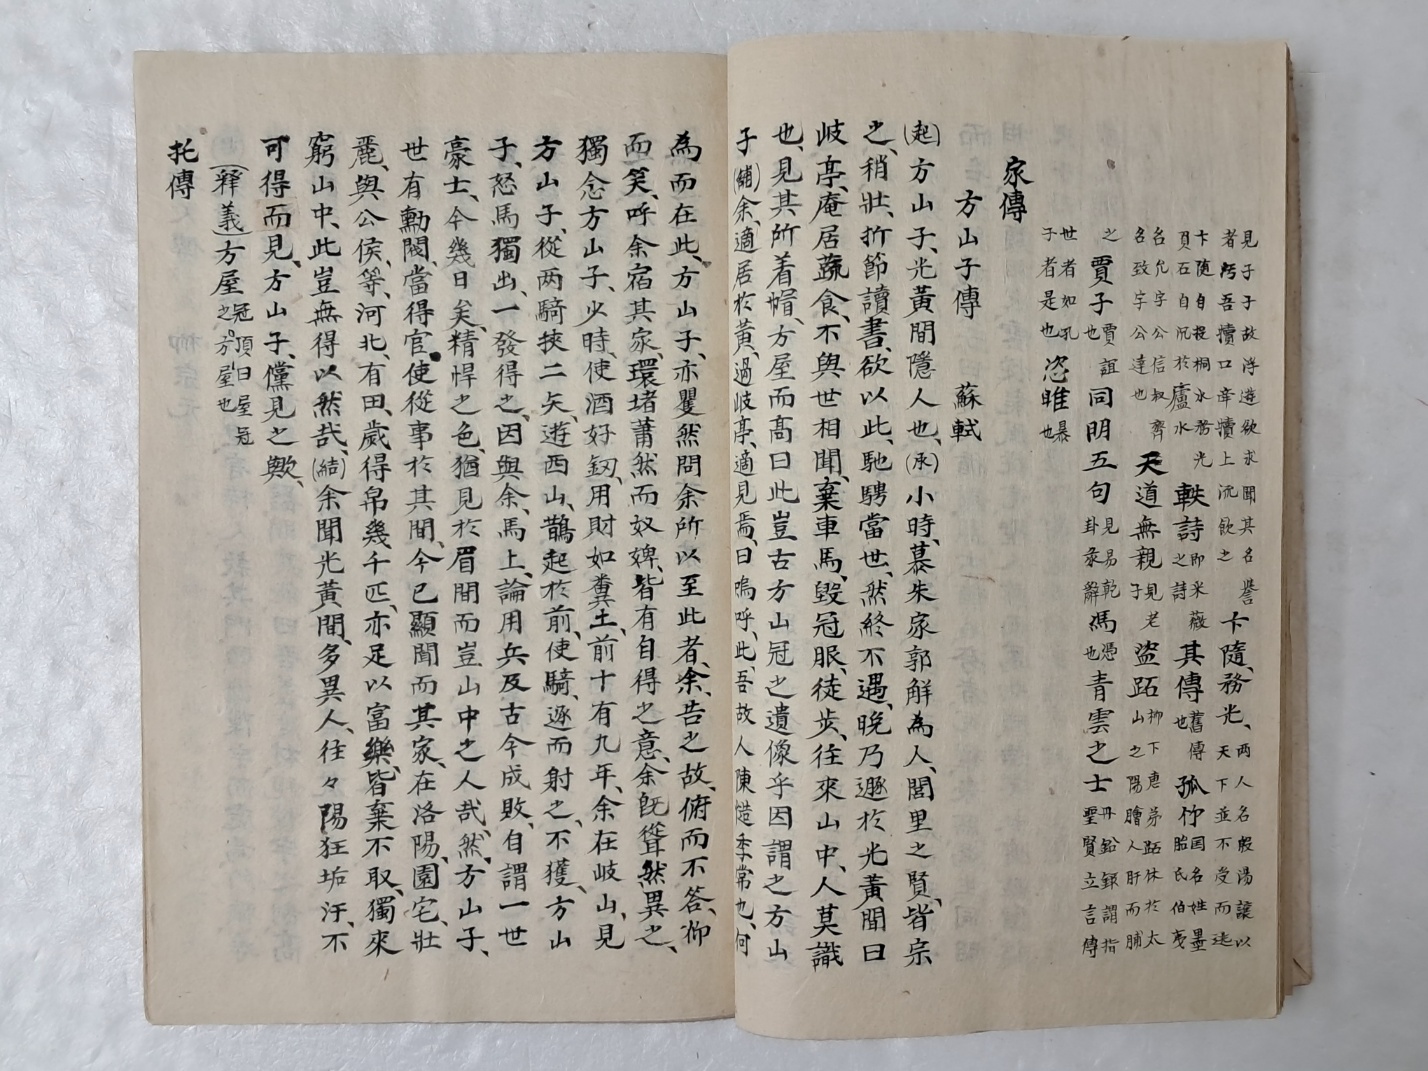 見子子故浮遊欲求聞其名譽 卞隨、務光、両人名殷湯讓以
者 吾犢口幸犢上流飲之 天下並不受而逃
卞随自投桐水務光 軼詩即采薇 其傳舊傳 孤竹国名姓墨
頁石自沉於廬水 之詩 也 胎氏伯夷
名允字公信叔齊 天道無親見老 盜跖柳下惠弟跖休於太
名致字公達也 子 山之陽膾人肝而脯
之賈子賈誼 同明五句見易乾 馮憑 青雲之士 丹鉛録謂指
也 卦彖辭 也 聖賢立言傳
世者如孔 恣睢暴
子者是也 也
家傳
方山子傳 蘇軾
(起)方山子、光黃間隱人也、(承)小時、慕朱家郭解為人、閭里之賢、皆宗
之、稍壯、折節讀書、欲以此、馳騁當世、然終不遇、晚乃遯於光黃間曰
岐亭、庵居蔬食、不與世相聞、棄車馬、毀冠服、徒步、往來山中、人莫識
也、見其所着帽、方屋而高曰此豈古方山冠之遺像乎因謂之方山
子(鋪)余、適居於黃、過岐亭、適見焉、曰嗚呼、此、吾故人陳慥季常也、何
為而在此、方山子、亦矍然問余所以至此者、余、告之故、俯而不答、仰
而笑、呼余宿其家、環堵蕭然而奴婢、皆有自得之意、余旣聳然異之、
獨念方山子、少時、使酒好釼、用財如糞土、前十有九年、余在岐山、見
方山子、從両騎挾二矢、遊西山、鵲起於前、使騎、逐而射之、不獲、方山
子、怒馬獨出、一發得之、因與余、馬上、論用兵及古今成敗、自謂一世
豪士、今幾日矣、精悍之色、猶見於眉間而豈山中之人哉、然、方山子、
世有勳閥、當得官、使從事於其間、今已顯聞而其家、在洛陽、園宅、壯
麗、與公侯、等、河北、有田、歲得帛幾千匹、亦足以富樂、皆棄不取、獨來
窮山中、此豈無得以然哉、(結)余聞光黃間、多異人、往々陽狂垢汙、不
可得而見、方山子、儻見之歟、
(釋義)方屋冠頂曰屋冠
之方屋也
托傳